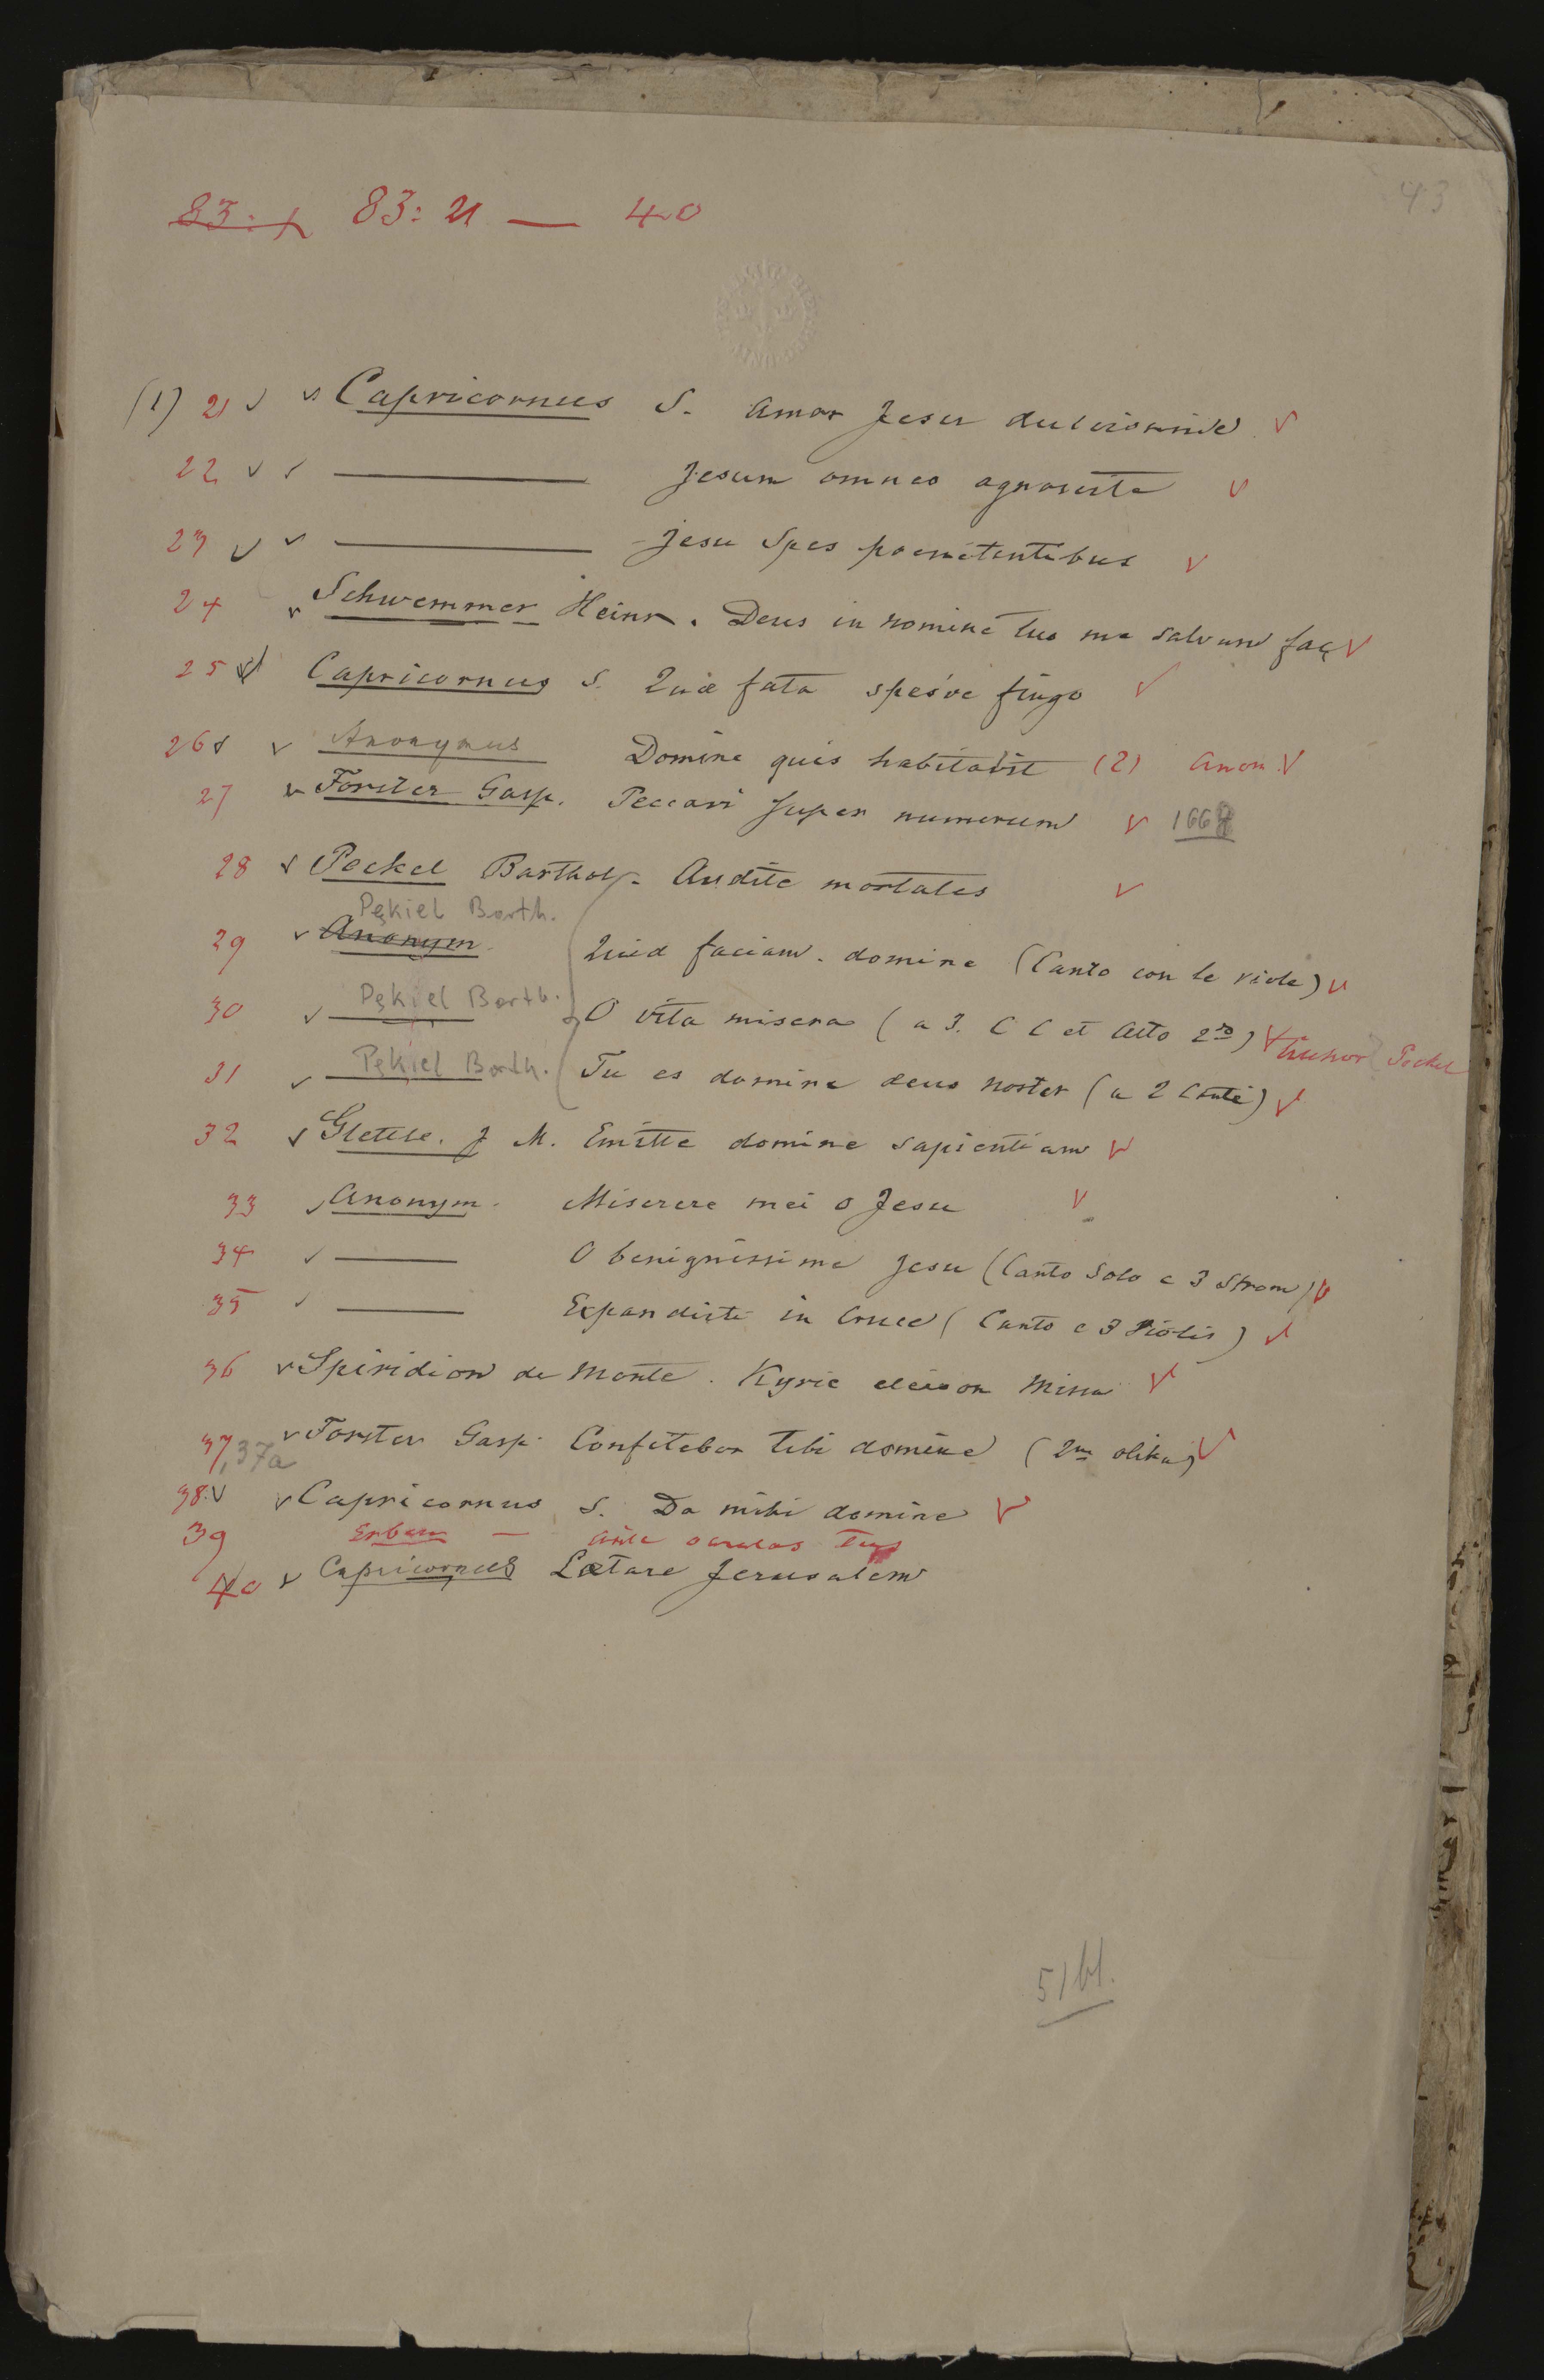 43
83:1 83: 21 — 40
(1) 21 v v Capricornus S. Amor Jesu dulcissime v
22 v v ——— Jesum omnes agnoscite v
23 v v ——— Jesu Spes poenitentibus v
24 v Schwemmer Heinr. Deus in nomine tuo me salvum fac v
25 v Capricornus S. Quæ fata spes've fingo v
26 v v Anonymus Domine quis habitabit (2) Anon. v
27 v Forster Gasp. Peccavi super numerum v 1667
28 v Peckel Barthol. Audite mortales v
Pękiel Barth.
29 v Anonym. Quid faciam domine (Canto con le viole) v
30 v Pękiel Barth. O vita misera (a 3. C C et Alto 2do) v Autor Peckel
31 v Pękiel Barth. Tu es domine deus noster (a 2 Canti) v
32 v Gletle. J M. Emitte domine sapientiam v
33 v Anonym. Miserere mei o Jesu v
34 v ——— O benignissime Jesu (Canto Solo c 3 Strom) v
35 v ——— Expandisti in Cruce (Canto c 3 Violis) v
36 v Spiridion de Monte. Kyrie eleison Missa v
37,37a v Forster Gasp. Confitebor tibi domine (2ne olika) v
38. v v Capricornus S. Da mihi domine v
39 Erben — Ante oculos tuos
40 v Capricornus Lætare Jerusalem
51 bl.